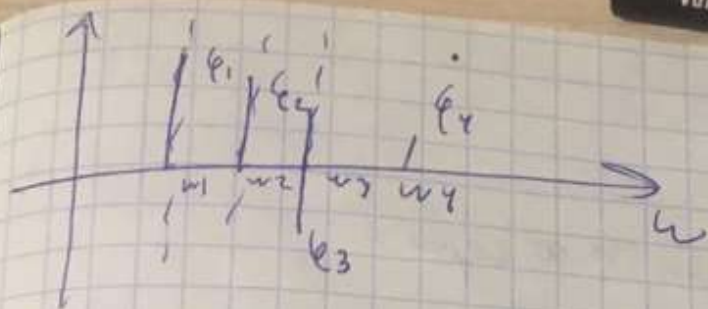 φ1 φ2 φ4
w1 w2 w3 w4
w
φ3